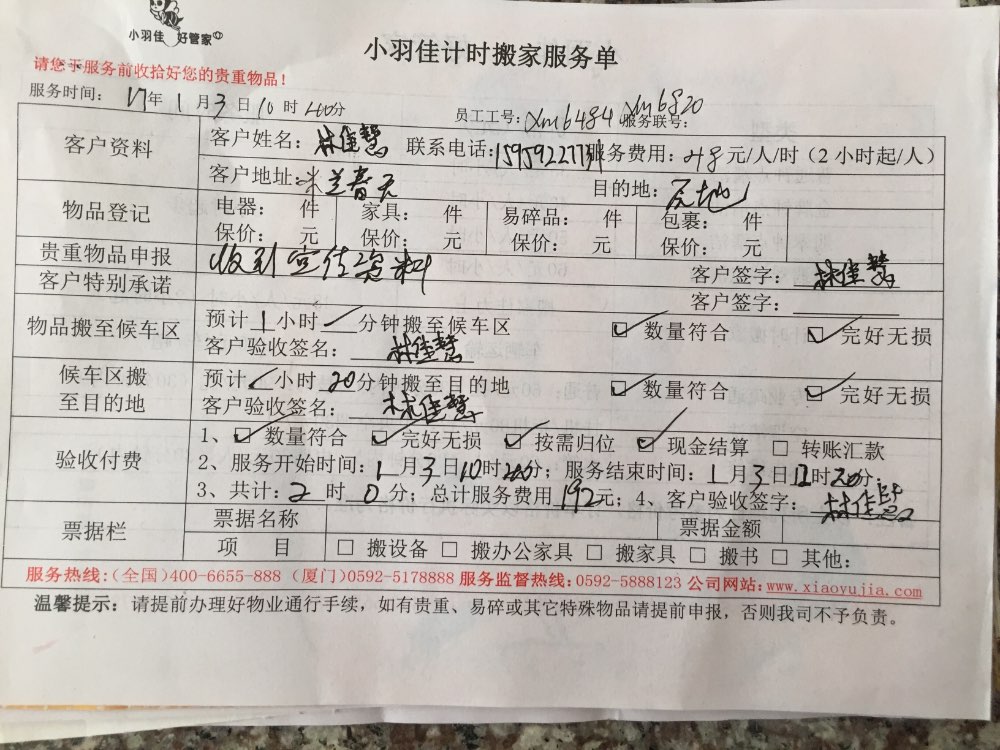 小羽佳 好管家
小羽佳计时搬家服务单
请您于服务前收拾好您的贵重物品！
服务时间： 17年 1 月 3 日 10 时 分
员工工号：xm6484 xm6820
服务联号：
客户资料
客户姓名：林佳慧 联系电话：服务费用：48元/人/时（2小时起/人）
客户地址：米兰春天 目的地：
物品登记
电器： 件 家具： 件 易碎品： 件 包裹： 件
保价： 元 保价： 元 保价： 元 保价： 元
贵重物品申报 收到宣传资料 客户签字：林佳慧
客户特别承诺 客户签字：
物品搬至候车区
预计1小时✓分钟搬至候车区 ☑数量符合 ☑完好无损
客户验收签名：林佳慧
候车区搬
至目的地
预计✓小时20分钟搬至目的地 ☑数量符合 ☑完好无损
客户验收签名：林佳慧
验收付费
1、☑数量符合 ☑完好无损 ☑按需归位 ☑现金结算 □转账汇款
2、服务开始时间：1月3日10时20分；服务结束时间：1月3日12时20分
3、共计：2时0分；总计服务费用192元；4、客户验收签字：林佳慧
票据栏
票据名称 票据金额
项 目 □搬设备 □搬办公家具 □搬家具 □搬书 □其他：
服务热线：（全国）400-6655-888（厦门）0592-5178888 服务监督热线：0592-5888123 公司网站：www.xiaoyujia.com
温馨提示：请提前办理好物业通行手续，如有贵重、易碎或其它特殊物品请提前申报，否则我司不予负责。